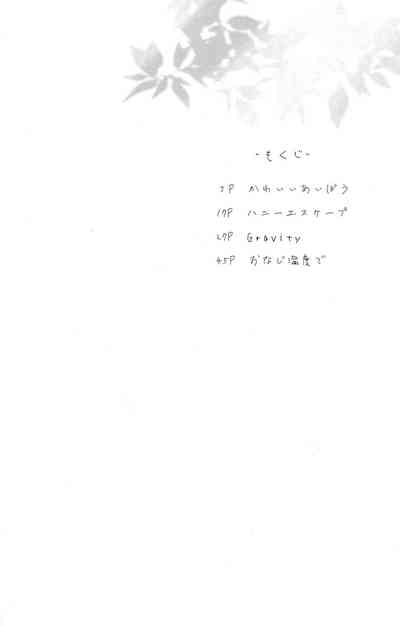 -もくじ-
7P かわいいあいぼう
17P ハニーエスケープ
27P Gravity
45P おなじ温度で